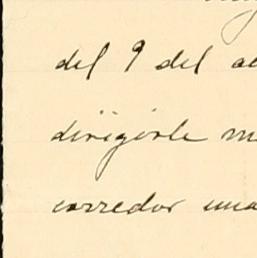 del 9 del
dirigirle
corredor una